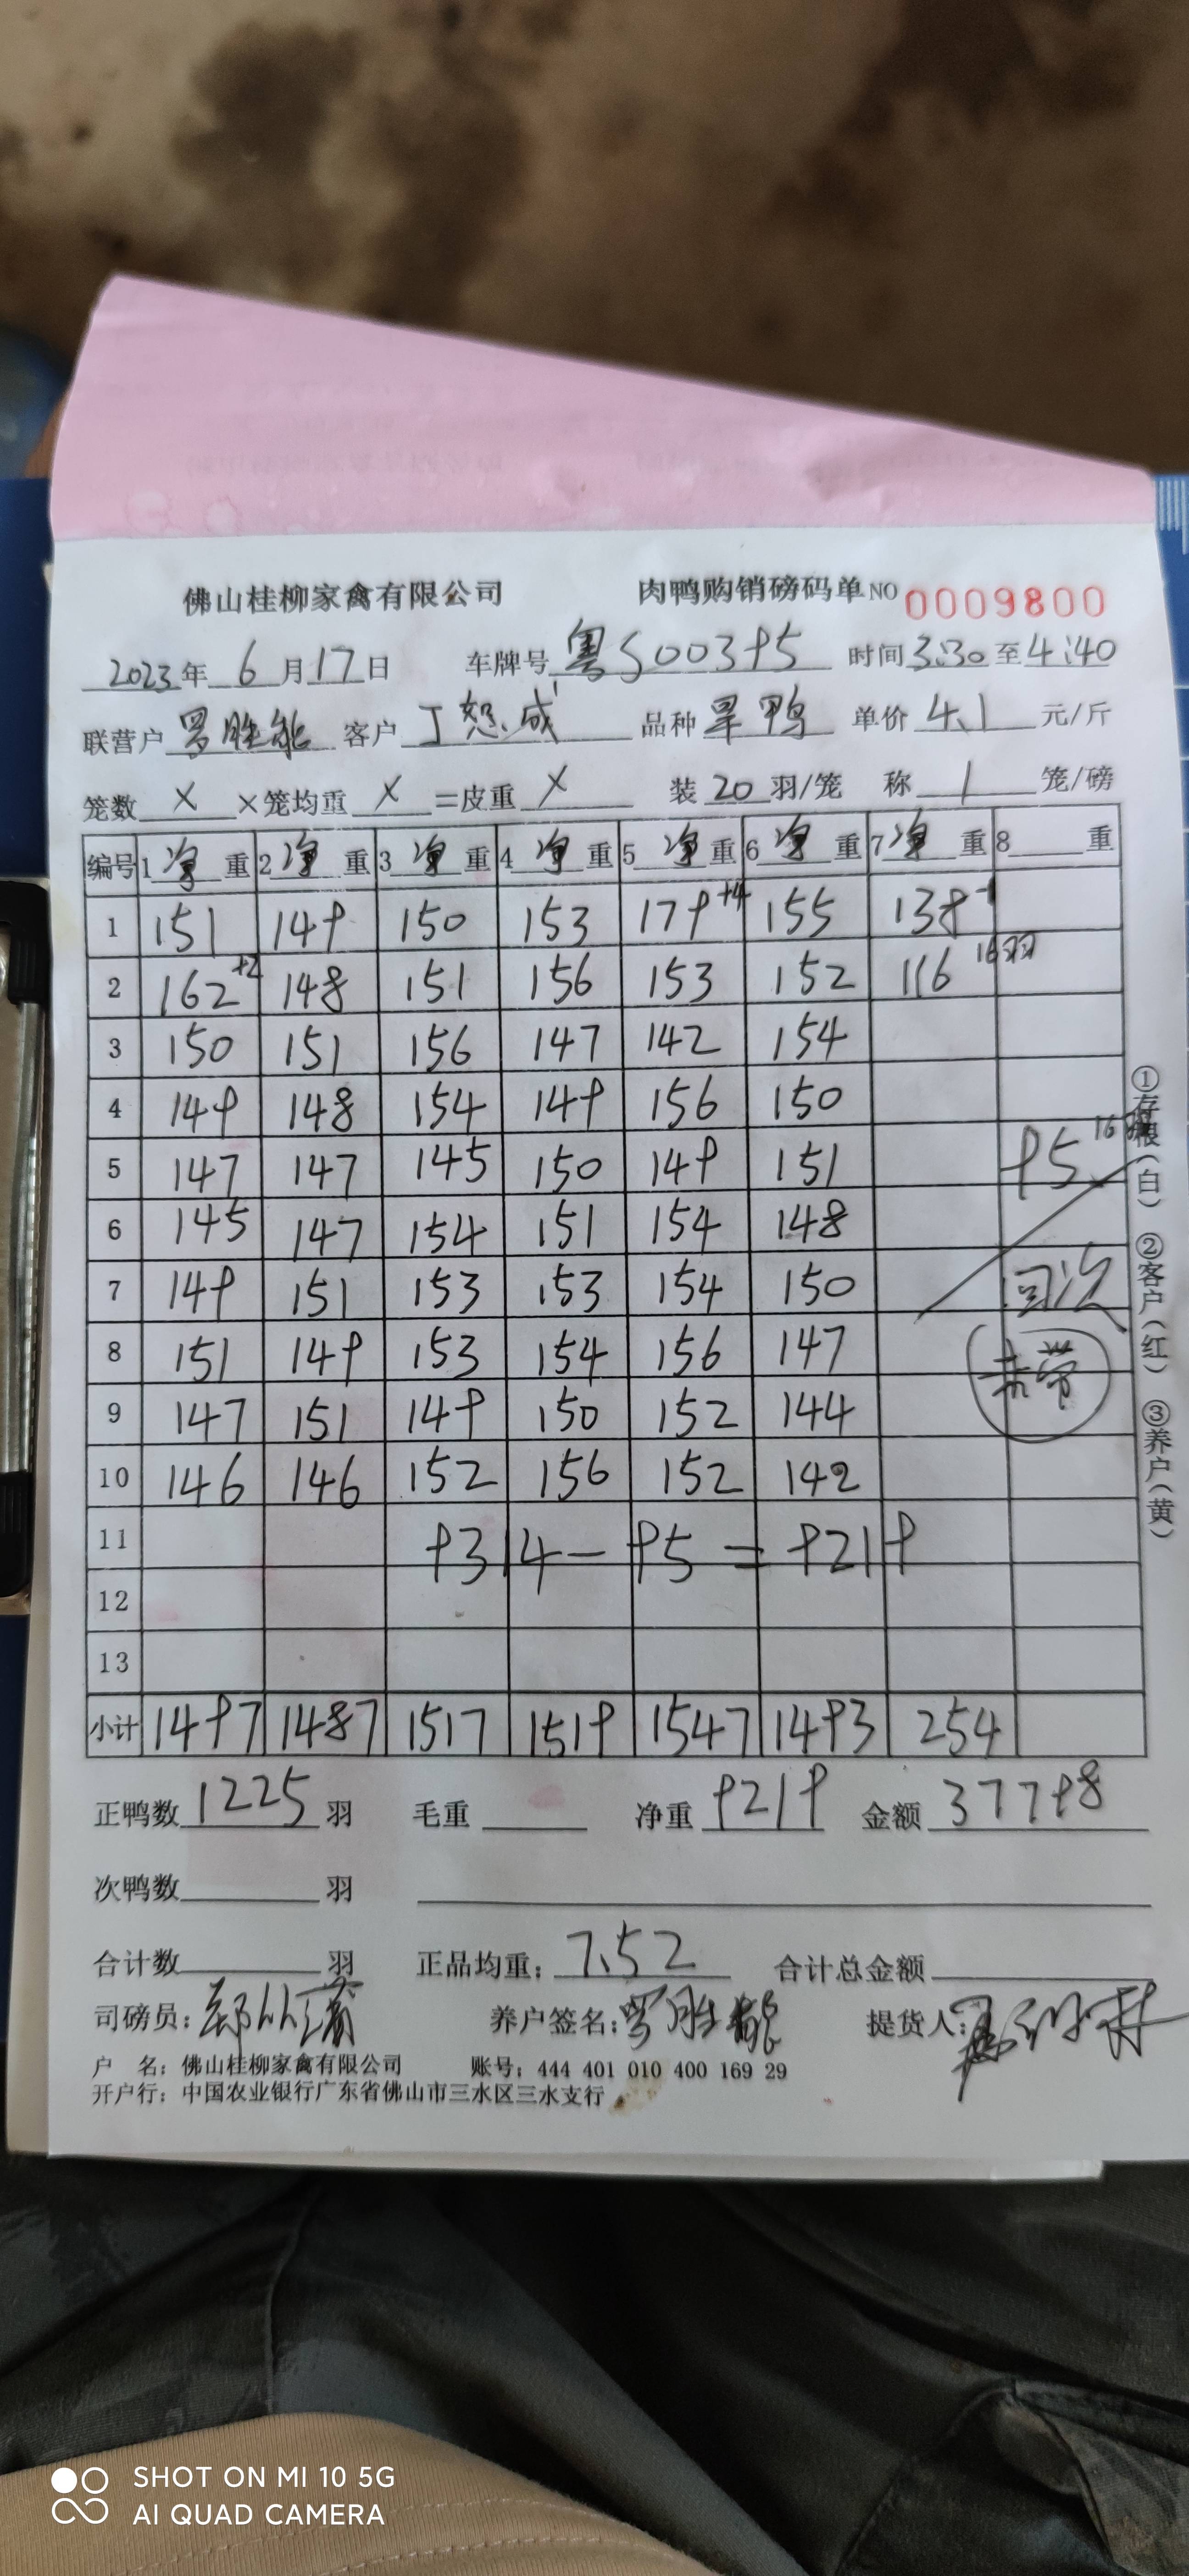 佛山桂柳家禽有限公司 肉鸭购销磅码单 NO 0009800
2023年 6月17日 车牌号 粤S00395 时间 3:30 至 4:40
联营户 罗胜能 客户 丁恕成 品种 旱鸭 单价 4.1 元/斤
笼数 X ×笼均重 X =皮重 X 装 20 羽/笼 称 1 笼/磅
编号 1 净 重 2 净 重 3 净 重 4 净 重 5 净 重 6 净 重 7 净 重 8 重
1 151 149 150 153 179 +4 155 139 -1
2 162 +2 148 151 156 153 152 116 16羽
3 150 151 156 147 142 154
4 149 148 154 149 156 150
5 147 147 145 150 149 151 95 16
6 145 147 154 151 154 148
7 149 151 153 153 154 150 回次
8 151 149 153 154 156 147
9 147 151 149 150 152 144
10 146 146 152 156 152 142
11 9314-95=9219
12
13
小计 1497 1487 1517 1519 1547 1493 254
①存根(白) ②客户(红) ③养户(黄)
正鸭数 1225 羽 毛重 净重 9219 金额 37798
次鸭数 羽
合计数 羽 正品均重: 7.52 合计总金额
司磅员: 养户签名: 罗胜能 提货人:
户 名: 佛山桂柳家禽有限公司 账号: 444 401 010 400 169 29
开户行: 中国农业银行广东省佛山市三水区三水支行
SHOT ON MI 10 5G
AI QUAD CAMERA